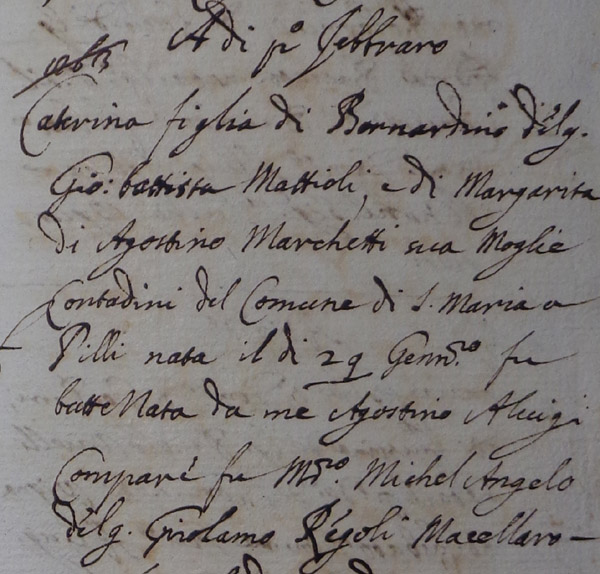 A di pº febbraro
Caterina figlia di Bernardino del q.
Gio: battista Mattioli, e di Margarita
di Agostino Marchetti sua Moglie
Contadini del Comune di S. Maria a
Pilli nata il di 29 Genn.ro fu
battezzata da me Agostino Aluigi
Compare fu M.ro Michel Angelo
del q. Girolamo Regoli Macellaro —